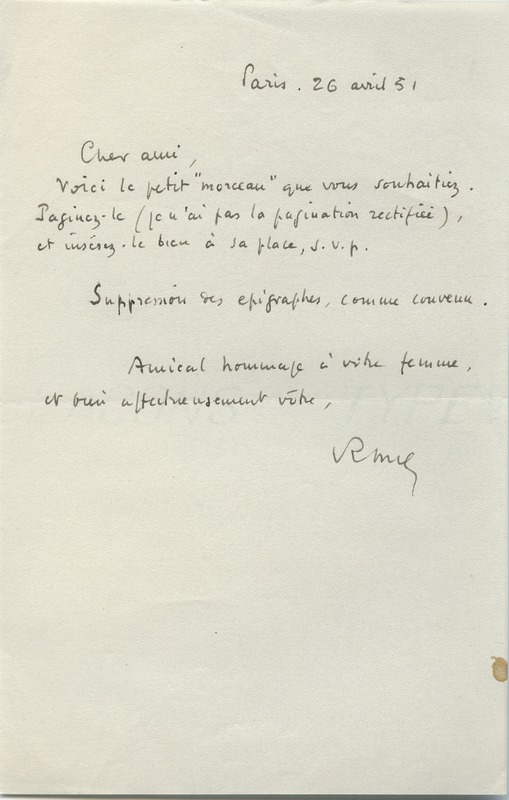 Paris. 26 avril 51
Cher ami,
Voici le petit "morceau" que vous souhaitiez.
Paginez-le (je n'ai pas la pagination rectifiée),
et insérez-le bien à sa place, s.v.p.
Suppression des epigraphes, comme convenu.
Amical hommage à votre femme,
et bien affectueusement vôtre,